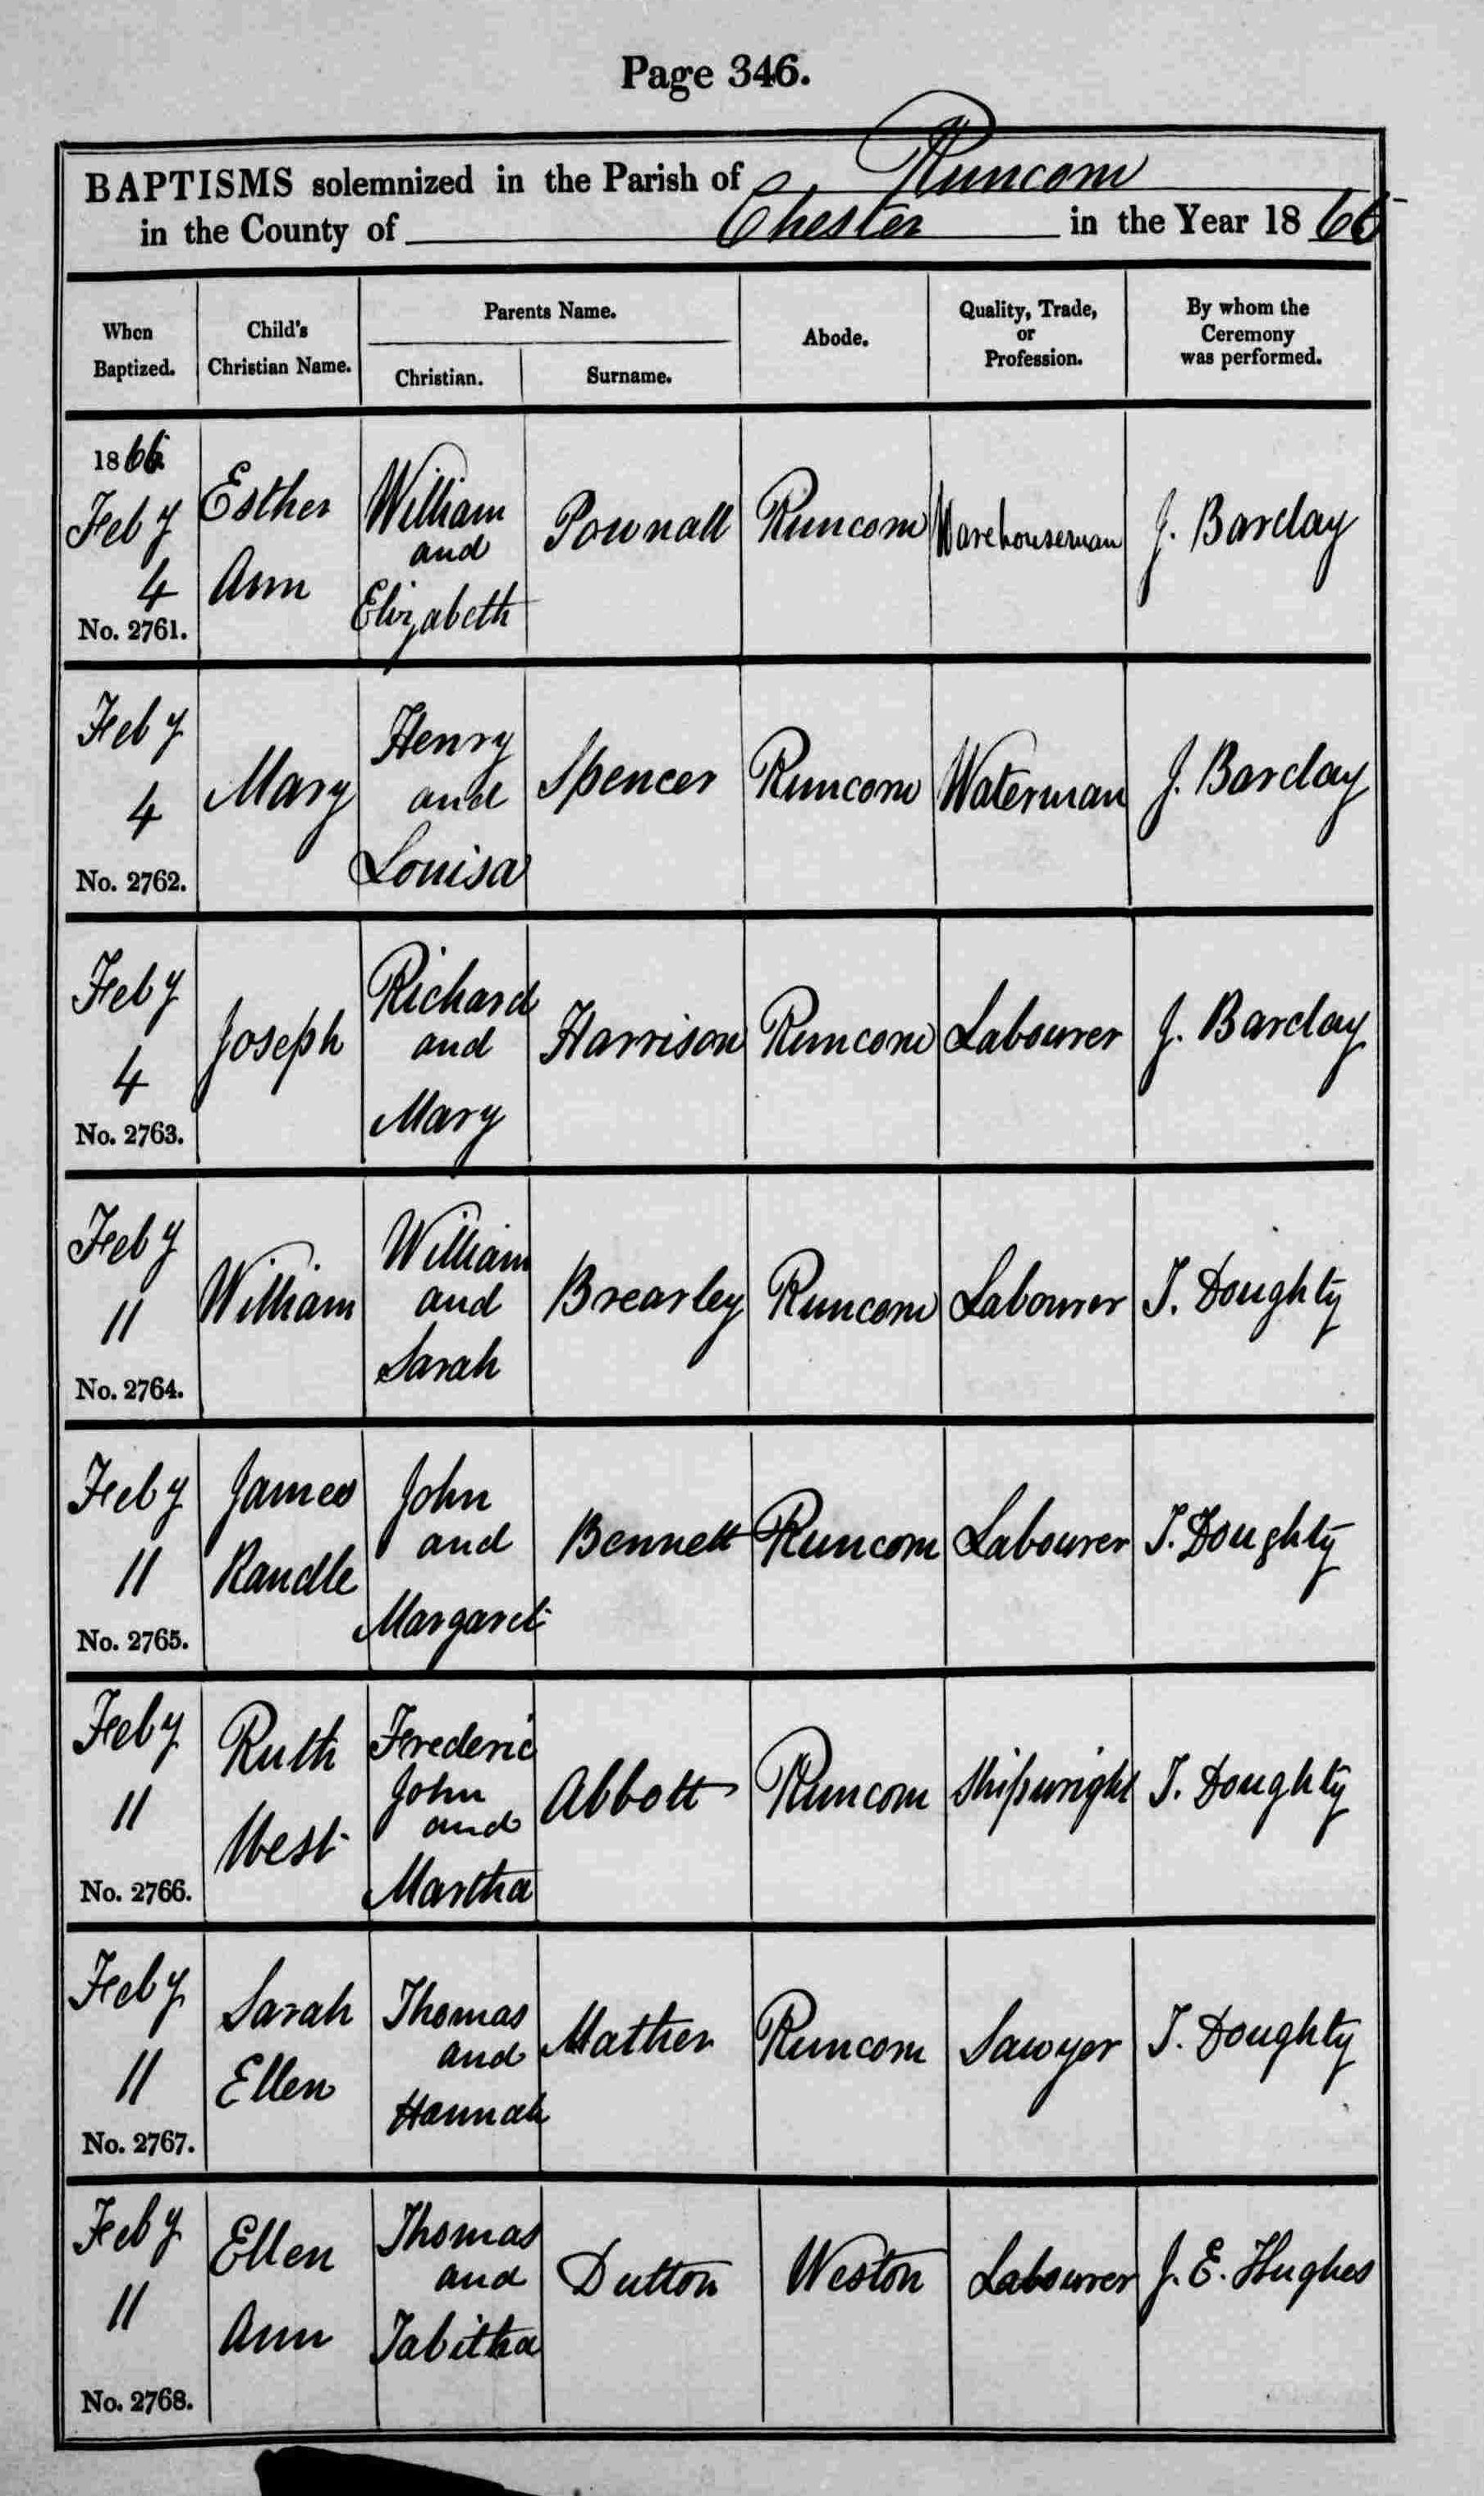 Page 346.
BAPTISMS solemnized in the Parish of Runcorn
in the County of Chester in the Year 1866
When Baptized.
Child's Christian Name.
Parents Name.
Christian.
Surname.
Abode.
Quality, Trade, or Profession.
By whom the Ceremony was performed.
1866
Feby
4
No. 2761.
Esther
Ann
William
and
Elizabeth
Pownall
Runcorn
Warehouseman
J. Barclay
Feby
4
No. 2762.
Mary
Henry
and
Louisa
Spencer
Runcorn
Waterman
J. Barclay
Feby
4
No. 2763.
Joseph
Richard
and
Mary
Harrison
Runcorn
Labourer
J. Barclay
Feby
11
No. 2764.
William
William
and
Sarah
Brearley
Runcorn
Labourer
T. Doughty
Feby
11
No. 2765.
James
Randle
John
and
Margaret
Bennett
Runcorn
Labourer
T. Doughty
Feby
11
No. 2766.
Ruth
West
Frederic
John
and
Martha
Abbott
Runcorn
Shipwright
T. Doughty
Feby
11
No. 2767.
Sarah
Ellen
Thomas
and
Hannah
Mather
Runcorn
Sawyer
T. Doughty
Feby
11
No. 2768.
Ellen
Ann
Thomas
and
Tabitha
Dutton
Weston
Labourer
J. E. Hughes